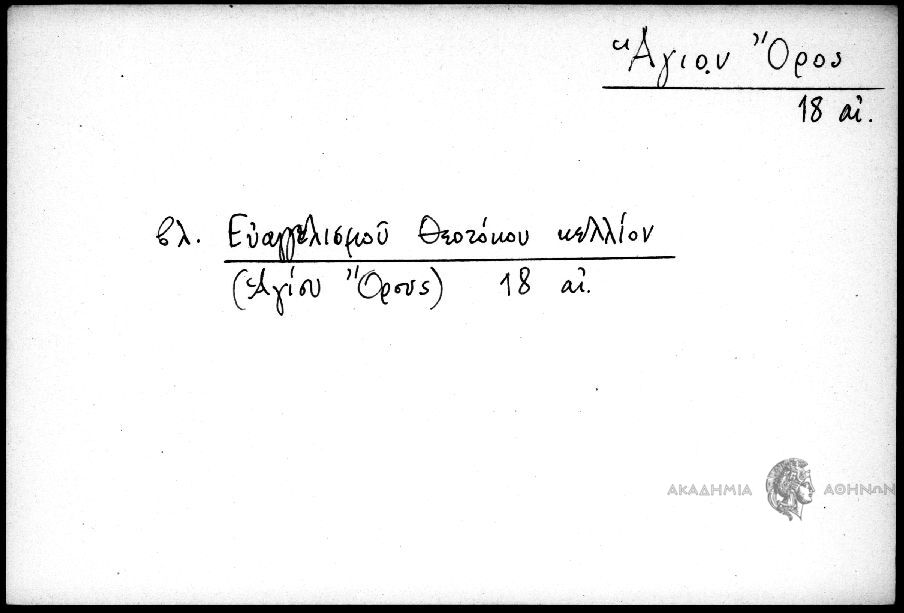 Ἅγιον Ὄρος
18 αἰ.
βλ. Εὐαγγελισμοῦ Θεοτόκου κελλίον
(Ἁγίου Ὄρους) 18 αἰ.
ΑΚΑΔΗΜΙΑ ΑΘΗΝΩΝ